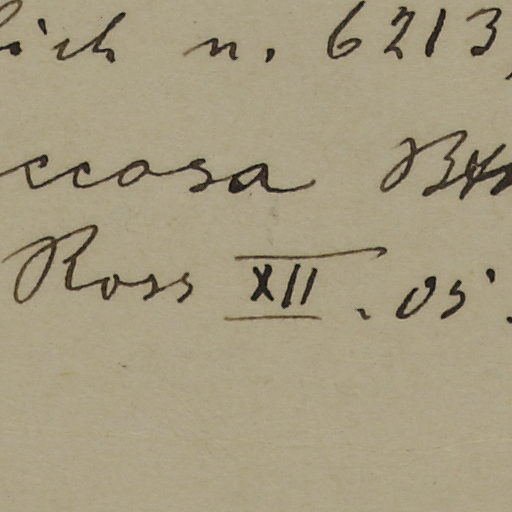 ich n. 6213,
ccosa
Ross XII. 05.